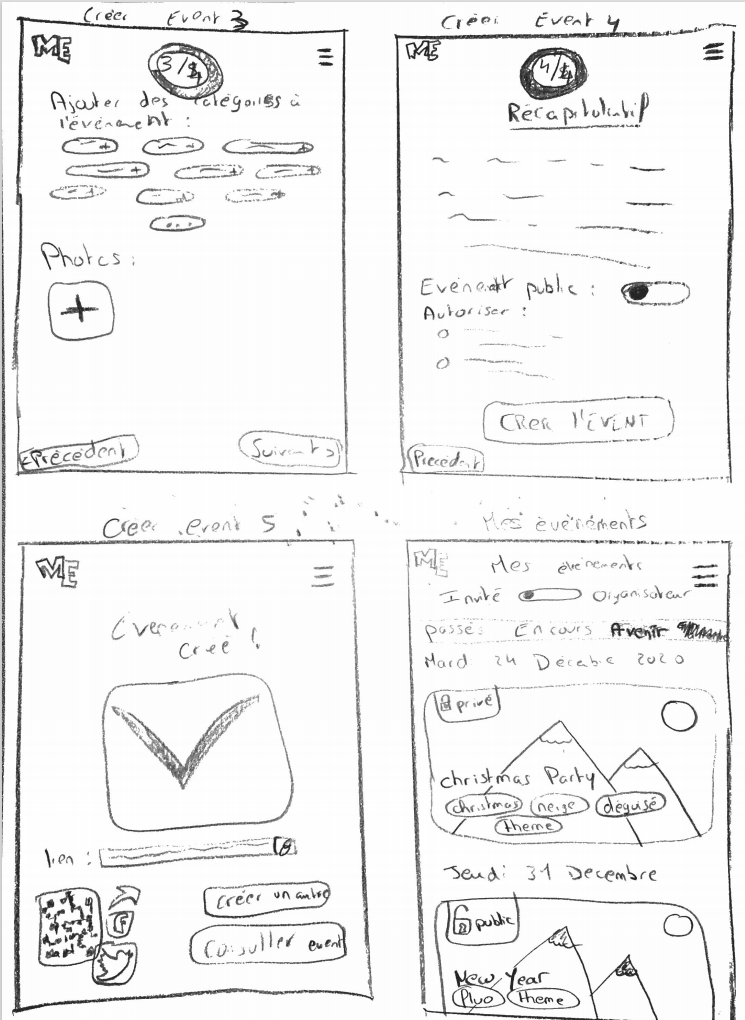 Créer Event 3
ME
3/4
Ajouter des catégories à
l'événement :
Photos :
+
< Précédent
Suivant >
Créer Event 4
ME
4/4
Récapitulatif
Evénement public :
Autoriser :
CRÉER l'ÉVENT
Précédent
Créer event 5
ME
Évenement
créé !
lien :
Créer un autre
Consulter event
Mes événements
ME
Mes événements
Invité Organisateur
passés En cours Avenir
Mardi 24 Décembre 2020
privé
christmas Party
christmas neige déguisé
theme
Jeudi 31 Decembre
public
New Year
Pluo theme